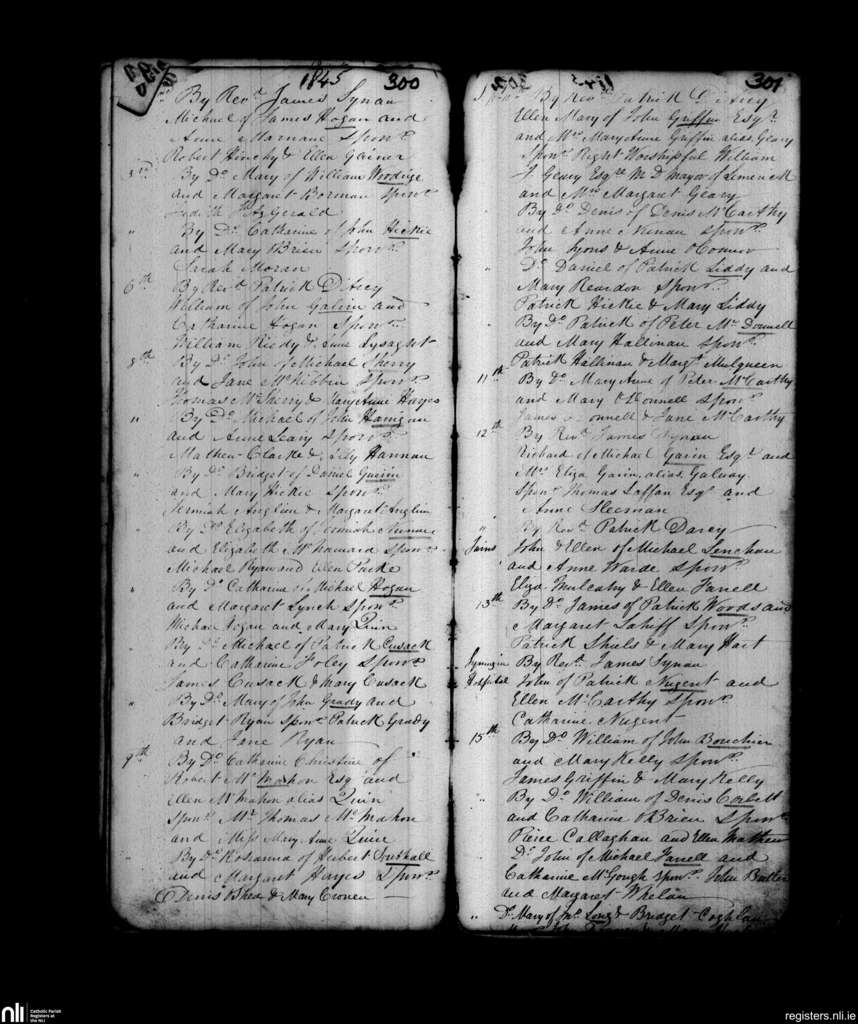 1845 300
By Revd. James Synan
Michael of James Hogan and
Anne Marnane Sponrs.
Robert Hinchy & Ellen Gainor
3rd By Do. Mary of William Woodige
and Margaret Borman Sponrs.
Judith FitzGerald
" By Do. Catharine of John Hickie
and Mary OBrien Sponrs.
Moran
6th By Revd. Patrick DArcy
William of John Galvin and
Catharine Hogan Sponrs.
William Reidy & Anne Lysaght
8th By Do. John of Michael Sherry
and Jane McKibbin Sponrs.
Thomas McSherry & MaryAnne Hayes
" By Do. Michael of John Hannon
and Anne Leary Sponrs.
Mathew Clarke & Hannan
" By Do. Bridget of Daniel
and Mary Hickie Sponrs.
Jermiah Anglim & Margaret Anglim
" By Do. Elizabeth of Jermiah
and Elizabeth McNamara Sponrs.
Michael Ryan and Ellen
" By Do. Catharine of Michael Hogan
and Margaret Lynch Sponrs.
Michael Hogan and Mary Quin
" By Do. Michael of Patrick Cusack
and Catharine Foley Sponrs
James Cusack & Mary Cusack
" By Do. Mary of John Grady and
Bridget Ryan Sponrs Patrick Grady
and Jane Ryan
9th By Do. Catharine Christine of
Robert McMahon Esq and
Ellen McMahon alias Quin
Sponrs Mr. Thomas McMahon
and Miss Mary Anne Quin
" By Do. Rosanna of Hubert Southall
and Margaret Hayes Sponrs
Denis & Mary Cronen
301
By Revd. Patrick DArcy
Ellen Mary of John Griffin Esqr.
and Mrs. MaryAnne Griffin alias Geary
Sponrs Right Worshipful William
Geary Esqre M D Mayor of Limerick
and Mrs Margaret Geary
By Do. Denis of Denis McCarthy
and Anne Nunan Sponrs.
John Lyons & Anne OConnor
" Do. Daniel of Patrick Liddy and
Mary Reardon Sponrs.
Patrick Hickie & Mary Liddy
" By Do. Patrick of Peter McDonnell
and Mary Hallinan Sponrs.
Patrick Hallinan & Margt. Mulqueen
11th By Do. MaryAnne of Peter McCarthy
and Mary ODonnell Sponrs
James & Jane McCarthy
12th By Revd. James Synan
Richard of Michael Gavin Esqr. and
Mrs. Eliza Gavin, alias Galway
Sponrs Thomas Laffan Esqr. and
Anne Sleeman
" By Revd. Patrick Darcy
Twins John & Ellen of Michael Lenehan
and Anne Wade Sponrs.
Eliza Mulcahy & Ellen Farrell
13th By Do. James of Patrick Woods and
Margaret Sponrs.
Patrick Shiels & Mary Hart
Lyingin By Revd. James Synan
Hospital John of Patrick Nugent and
Ellen McCarthy Sponrs.
Catharine Nugent
15th By Do. William of John Bourchier
and Mary Kelly Sponrs.
James Griffin & Mary Kelly
" By Do. William of Denis Corbett
and Catharine OBrien Sponrs
Pierce Callaghan and Ellen Mathew
Do. John of Michael Farrell and
Catharine McGough Sponrs. John Butler
and Margaret Whelan
" Do. Mary of Jno. Long & Bridget Coghlan
nli
Catholic Parish
Registers at
the NLI
registers.nli.ie